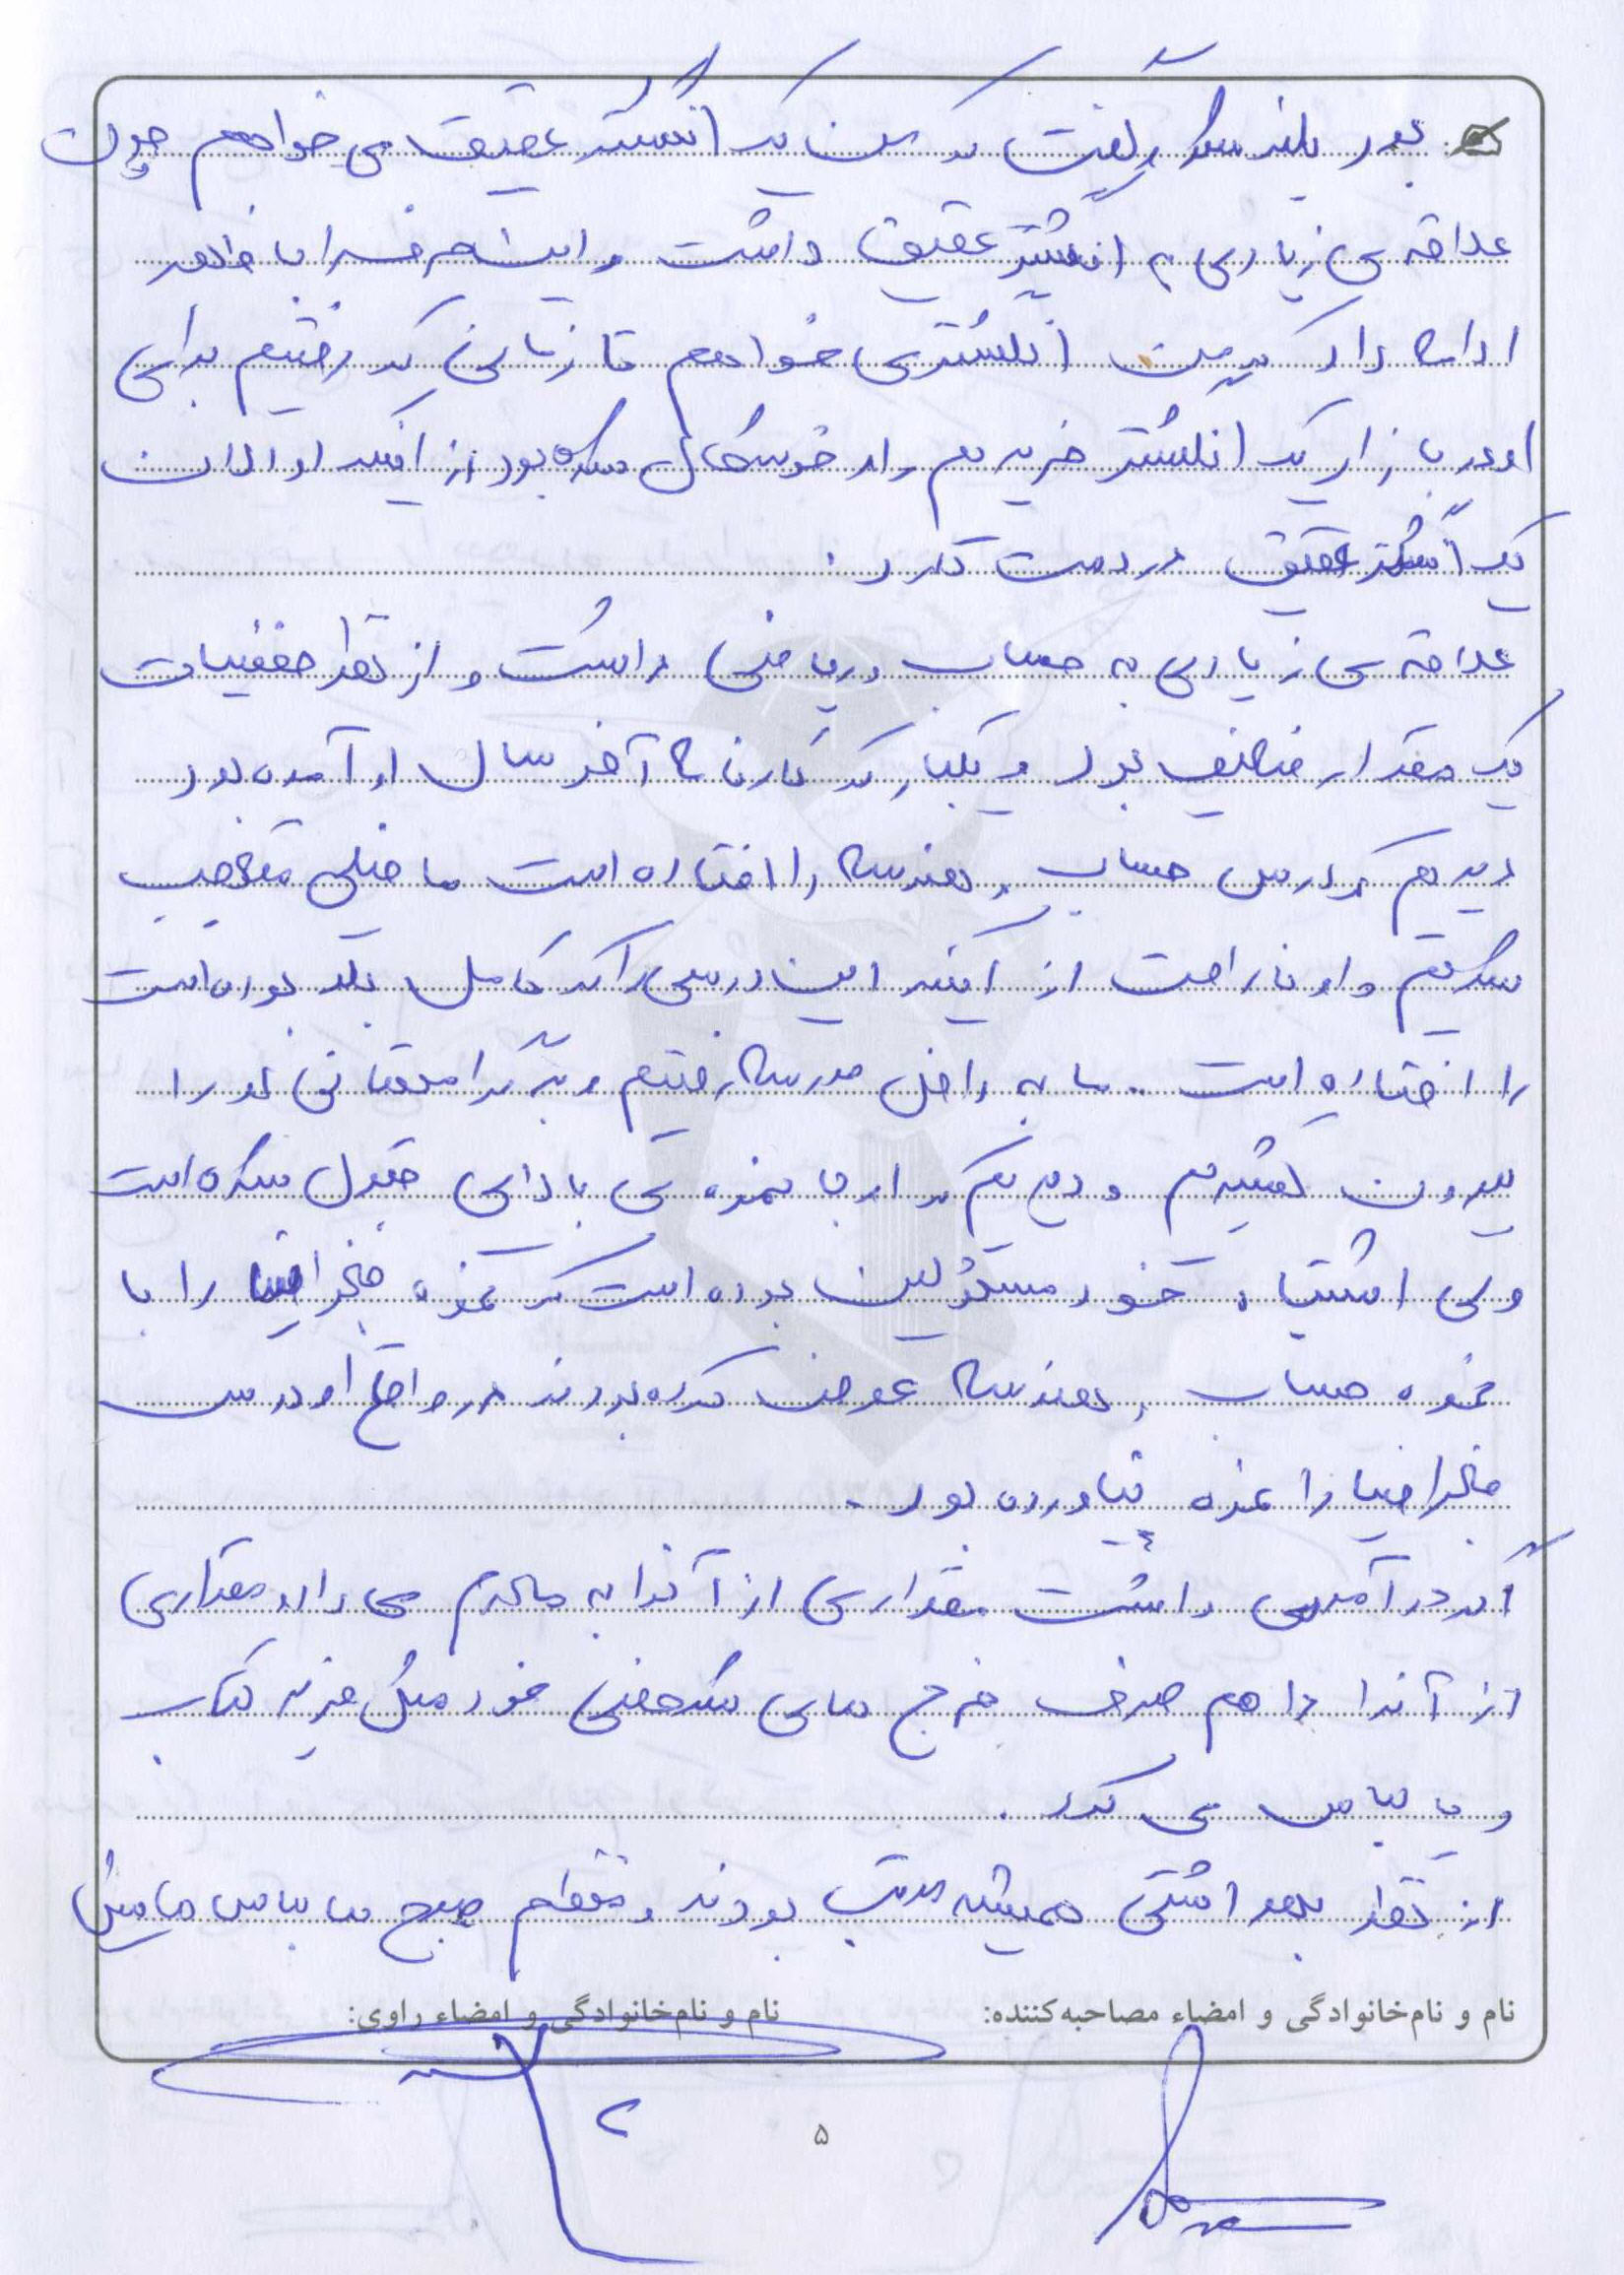 بود بلند شد و گفت که من یک انگشتر عقیق می خواهم چون
علاقه ی زیادی به انگشتر عقیق داشت و این حرفش را با ظهر
ادامه داد که من انگشتری خواهم تا زمانی که رفتیم برای
او در بازار یک انگشتر خریدیم و او خوشحال شده بود از اینکه او الان
یک انگشتر عقیق در دست دارد.
علاقه ی زیادی به حساب و ریاضی داشت و از نظر جغرافیا
یک مقدار ضعیف بود و یکبار که کارنامه آخر سال او آمده بود
دیدیم که درس حساب و هندسه را افتاده است ما خیلی متعجب
شدیم و او ناراحت از اینکه این درسی را که کامل بلد بوده است
را افتاده است. ما به داخل مدرسه رفتیم و برگه امتحانی او را
بیرون کشیدیم و دیدیم که او با نمره ی بالایی قبول شده است
ولی اشتباه خود مسئولین بوده است که نمره جغرافیا را با
نمره حساب و هندسه عوض کرده بودند در واقع او درس
جغرافیا را نمره نیاورده بود.
اگر درآمدی داشت مقداری از آنرا به مادرم می داد و مقداری
از آنرا را هم صرف خرج های شخصی خود مثل خرید کتاب
و یا لباس می کرد.
از نظر بهداشتی همیشه مرتب بودند و معلم صبح ما لباس ما مثل
نام و نام‌خانوادگی و امضاء مصاحبه‌کننده: نام و نام‌خانوادگی و امضاء راوی:
۵